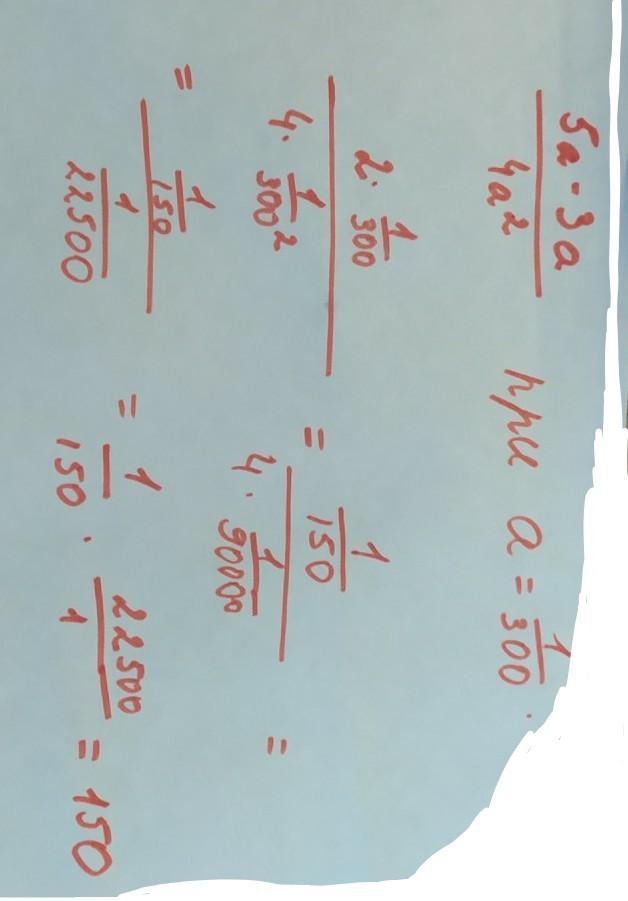 (5a - 3a)/(4a²) при a = 1/300.
(2 · 1/300)/(4 · 1/300²) = (1/150)/(4 · 1/90000) =
= (1/150)/(1/22500) = 1/150 · 22500/1 = 150